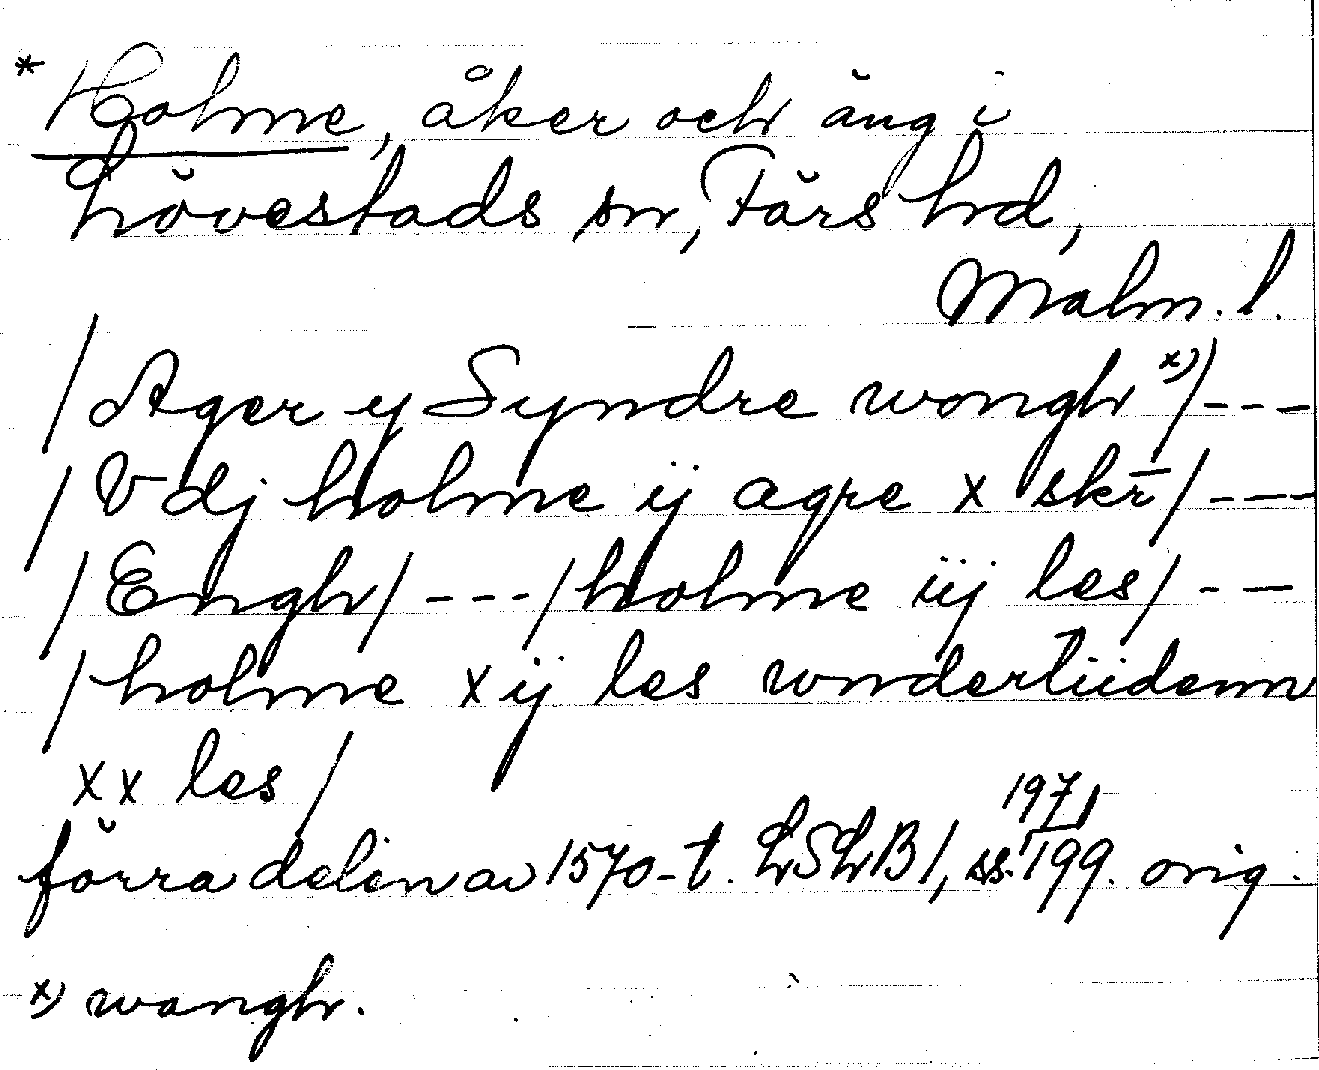 * Holme, åker och äng i
Lövestads sn, Färs hd,
Malm. l.
/ Ager y Syndre wongh x) / ---
/ V dj holme ij agre x skr̄ / ---
/ Engh / --- / holme iij les / --
/ holme xij les wndertiidenn
xx les /
förra delen av 1570-t. LSLB1, ss. 197, 199. orig.
x) wangh.